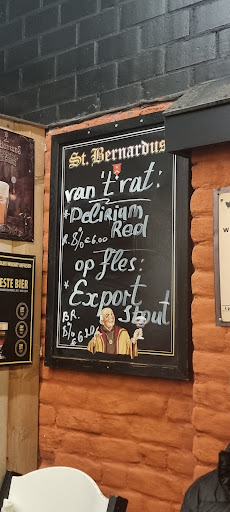 St. Bernardus
van 't rat:
* Delirium
Red
R. 8% €6.00
op fles:
* Export
Stout
BR.
ESTE BIER